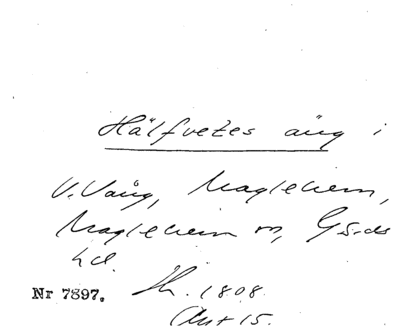 Hälfvetes äng i
V. Vång, Maglehem,
Maglehem sn, Gärds
hd.
Nr 7897. Sk. 1808.
Akt 15.